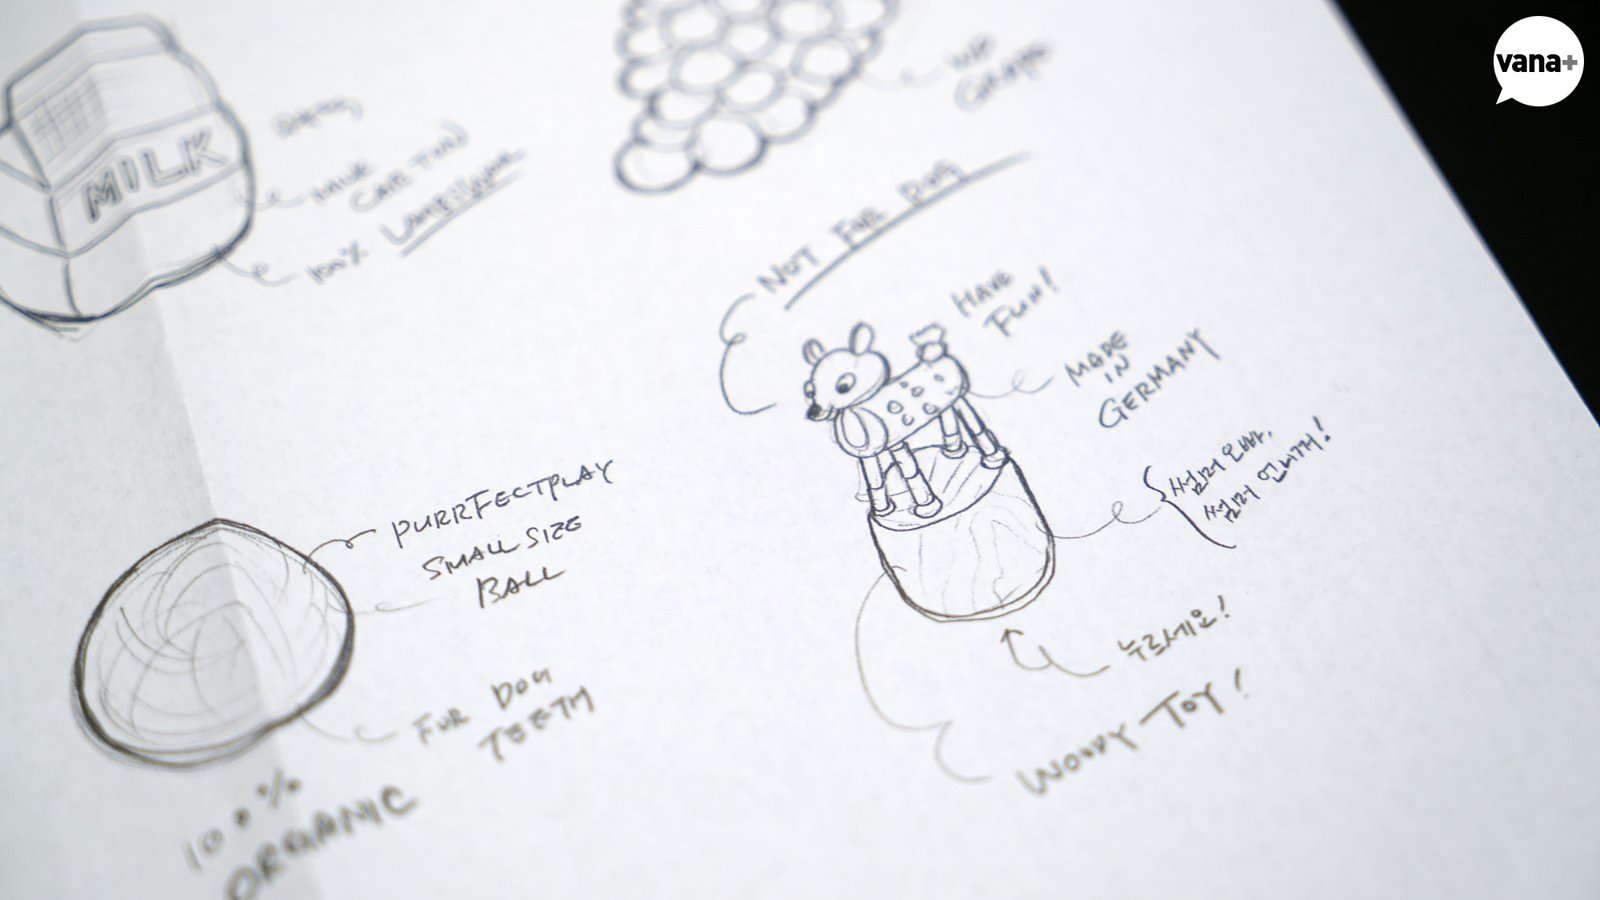 vana+
MILK
MILK
CARTON
100%
GRAPE
NOT FOR DOG
HAVE
FUN!
MADE
IN
GERMANY
썸머 오빠,
썸머 언니꺼!
누르세요!
WOODY TOY!
PURRFECTPLAY
SMALL SIZE
BALL
FOR DOG
TEETH
100%
ORGANIC